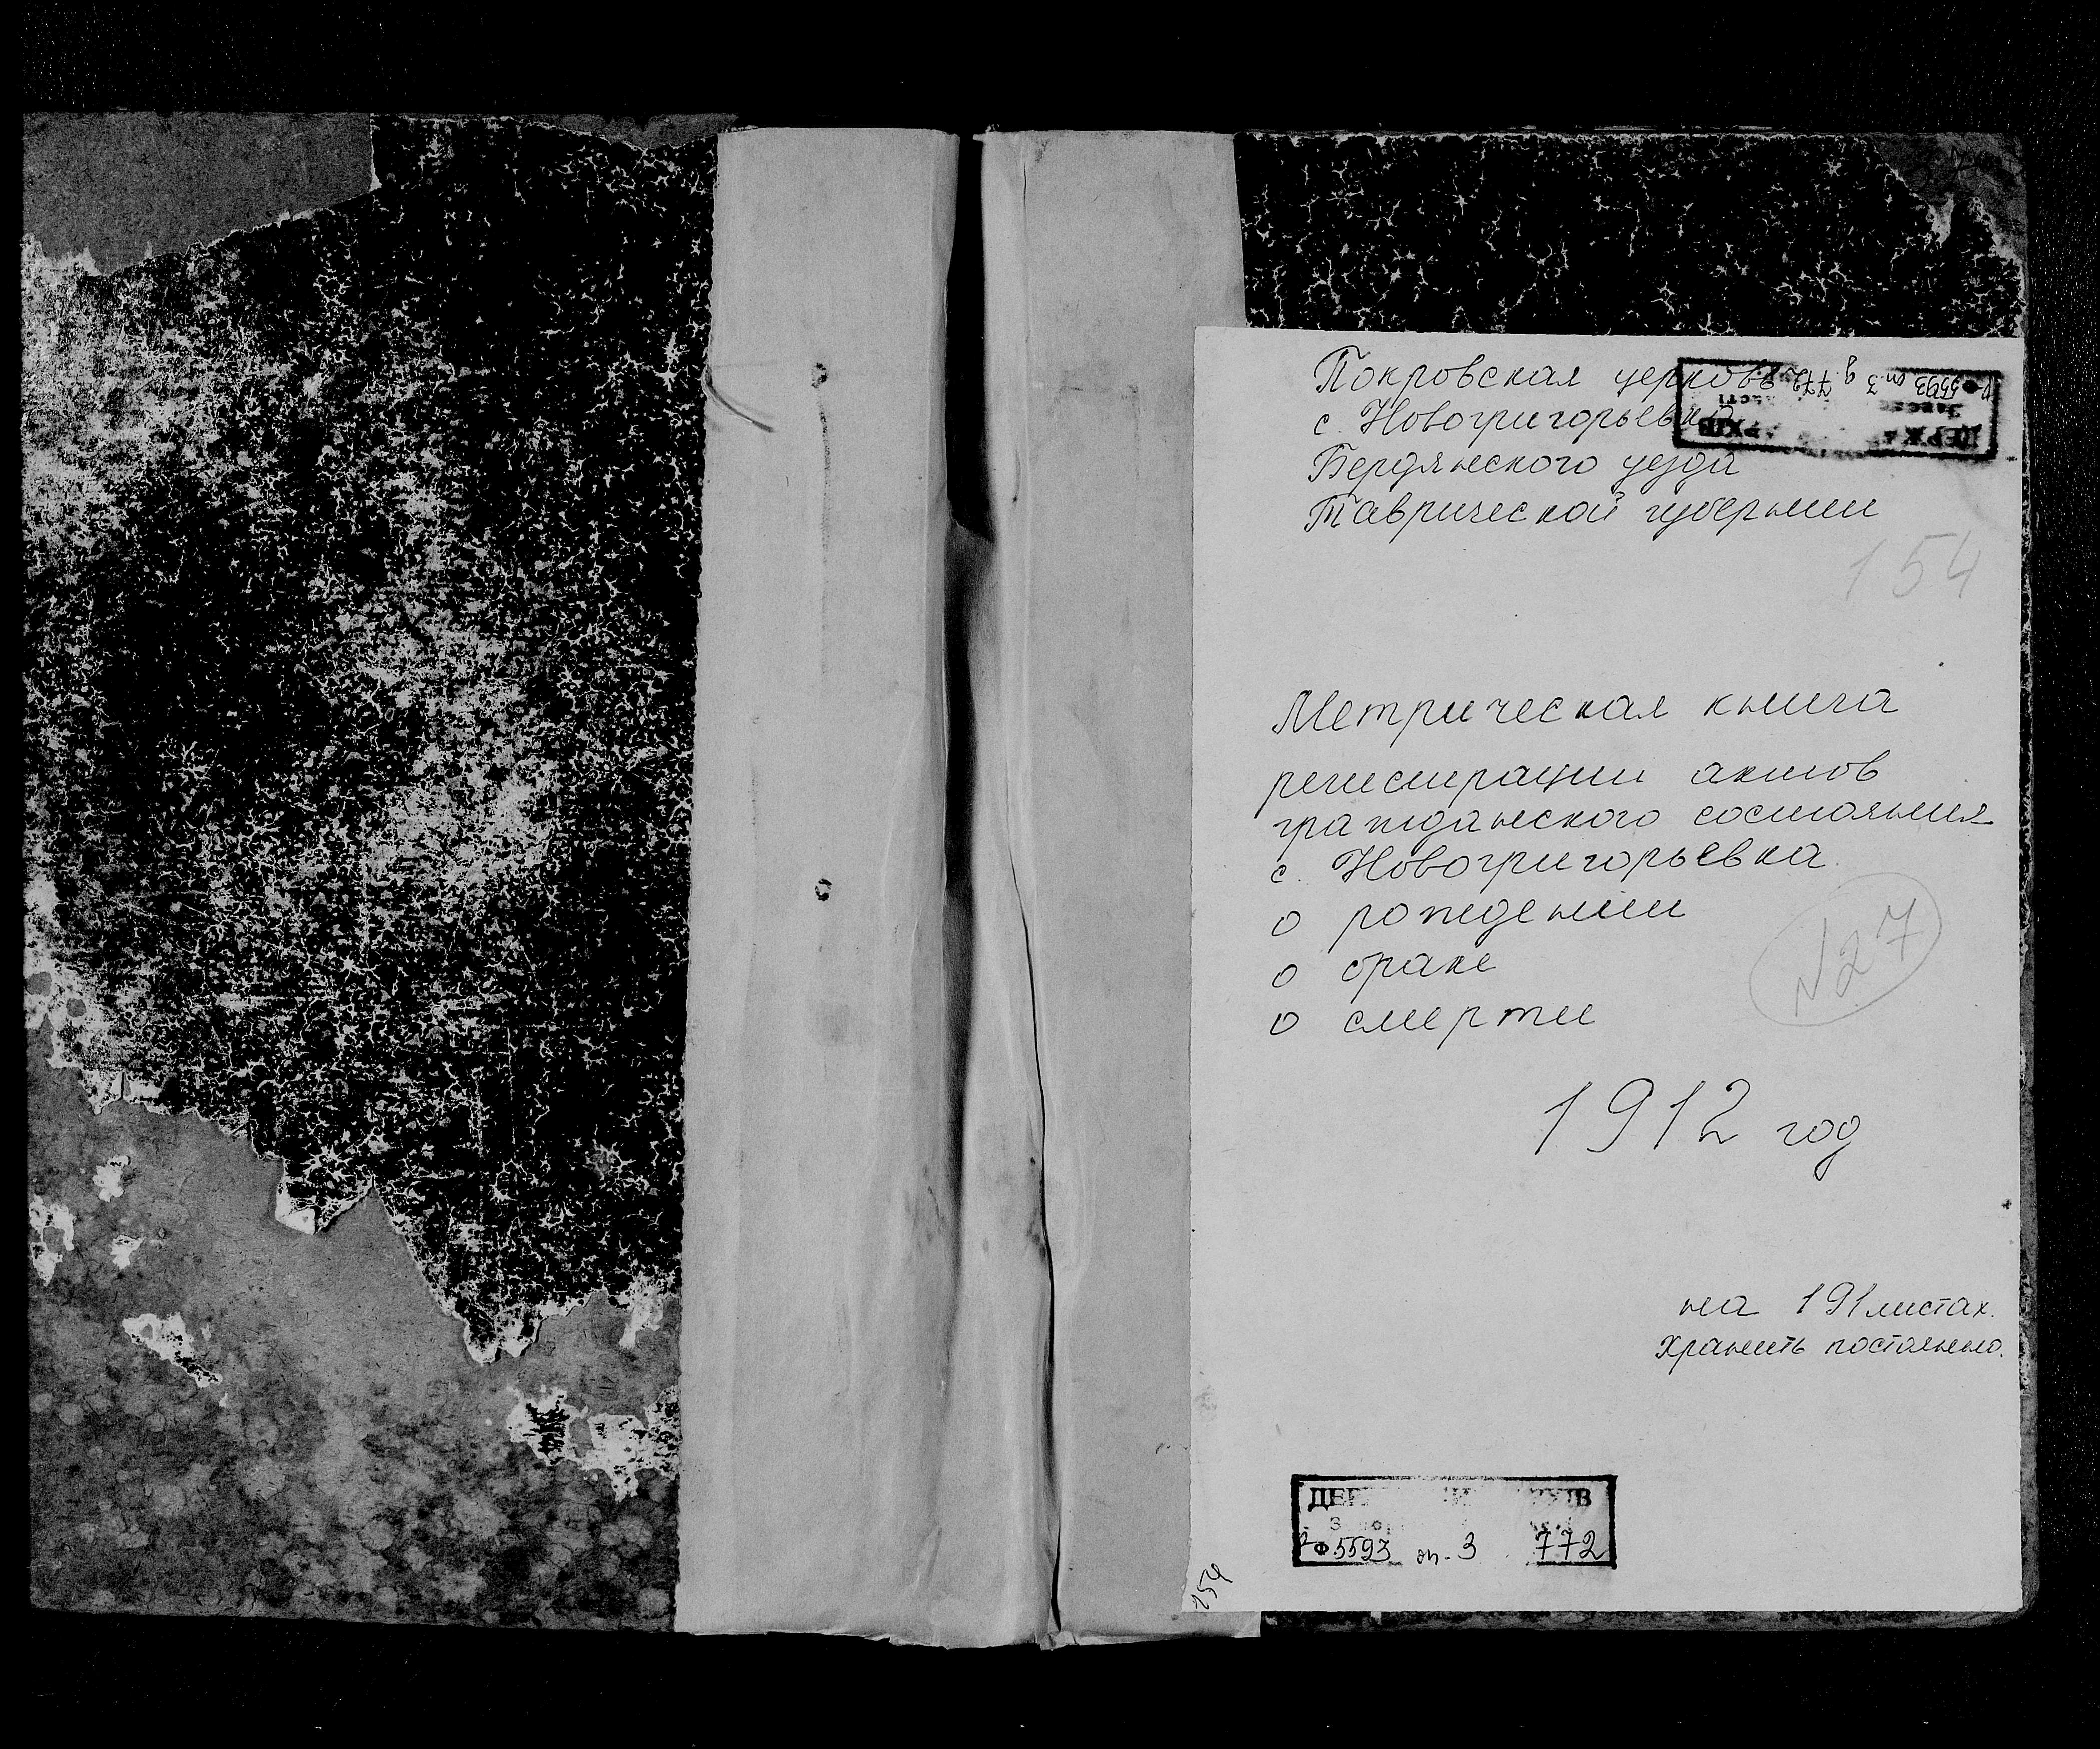 Покровская церковь
с. Новогригорьевка
Бердянского уезда
Таврической губернии
Ф5593 оп.3 д.772
154
Метрическая книга
регистрации актов
гражданского состояния
с. Новогригорьевка
о рождении
о браке
о смерти
N27
1912 год
на 191 листах.
Хранить постоянно.
Ф5593 оп. 3 772
154